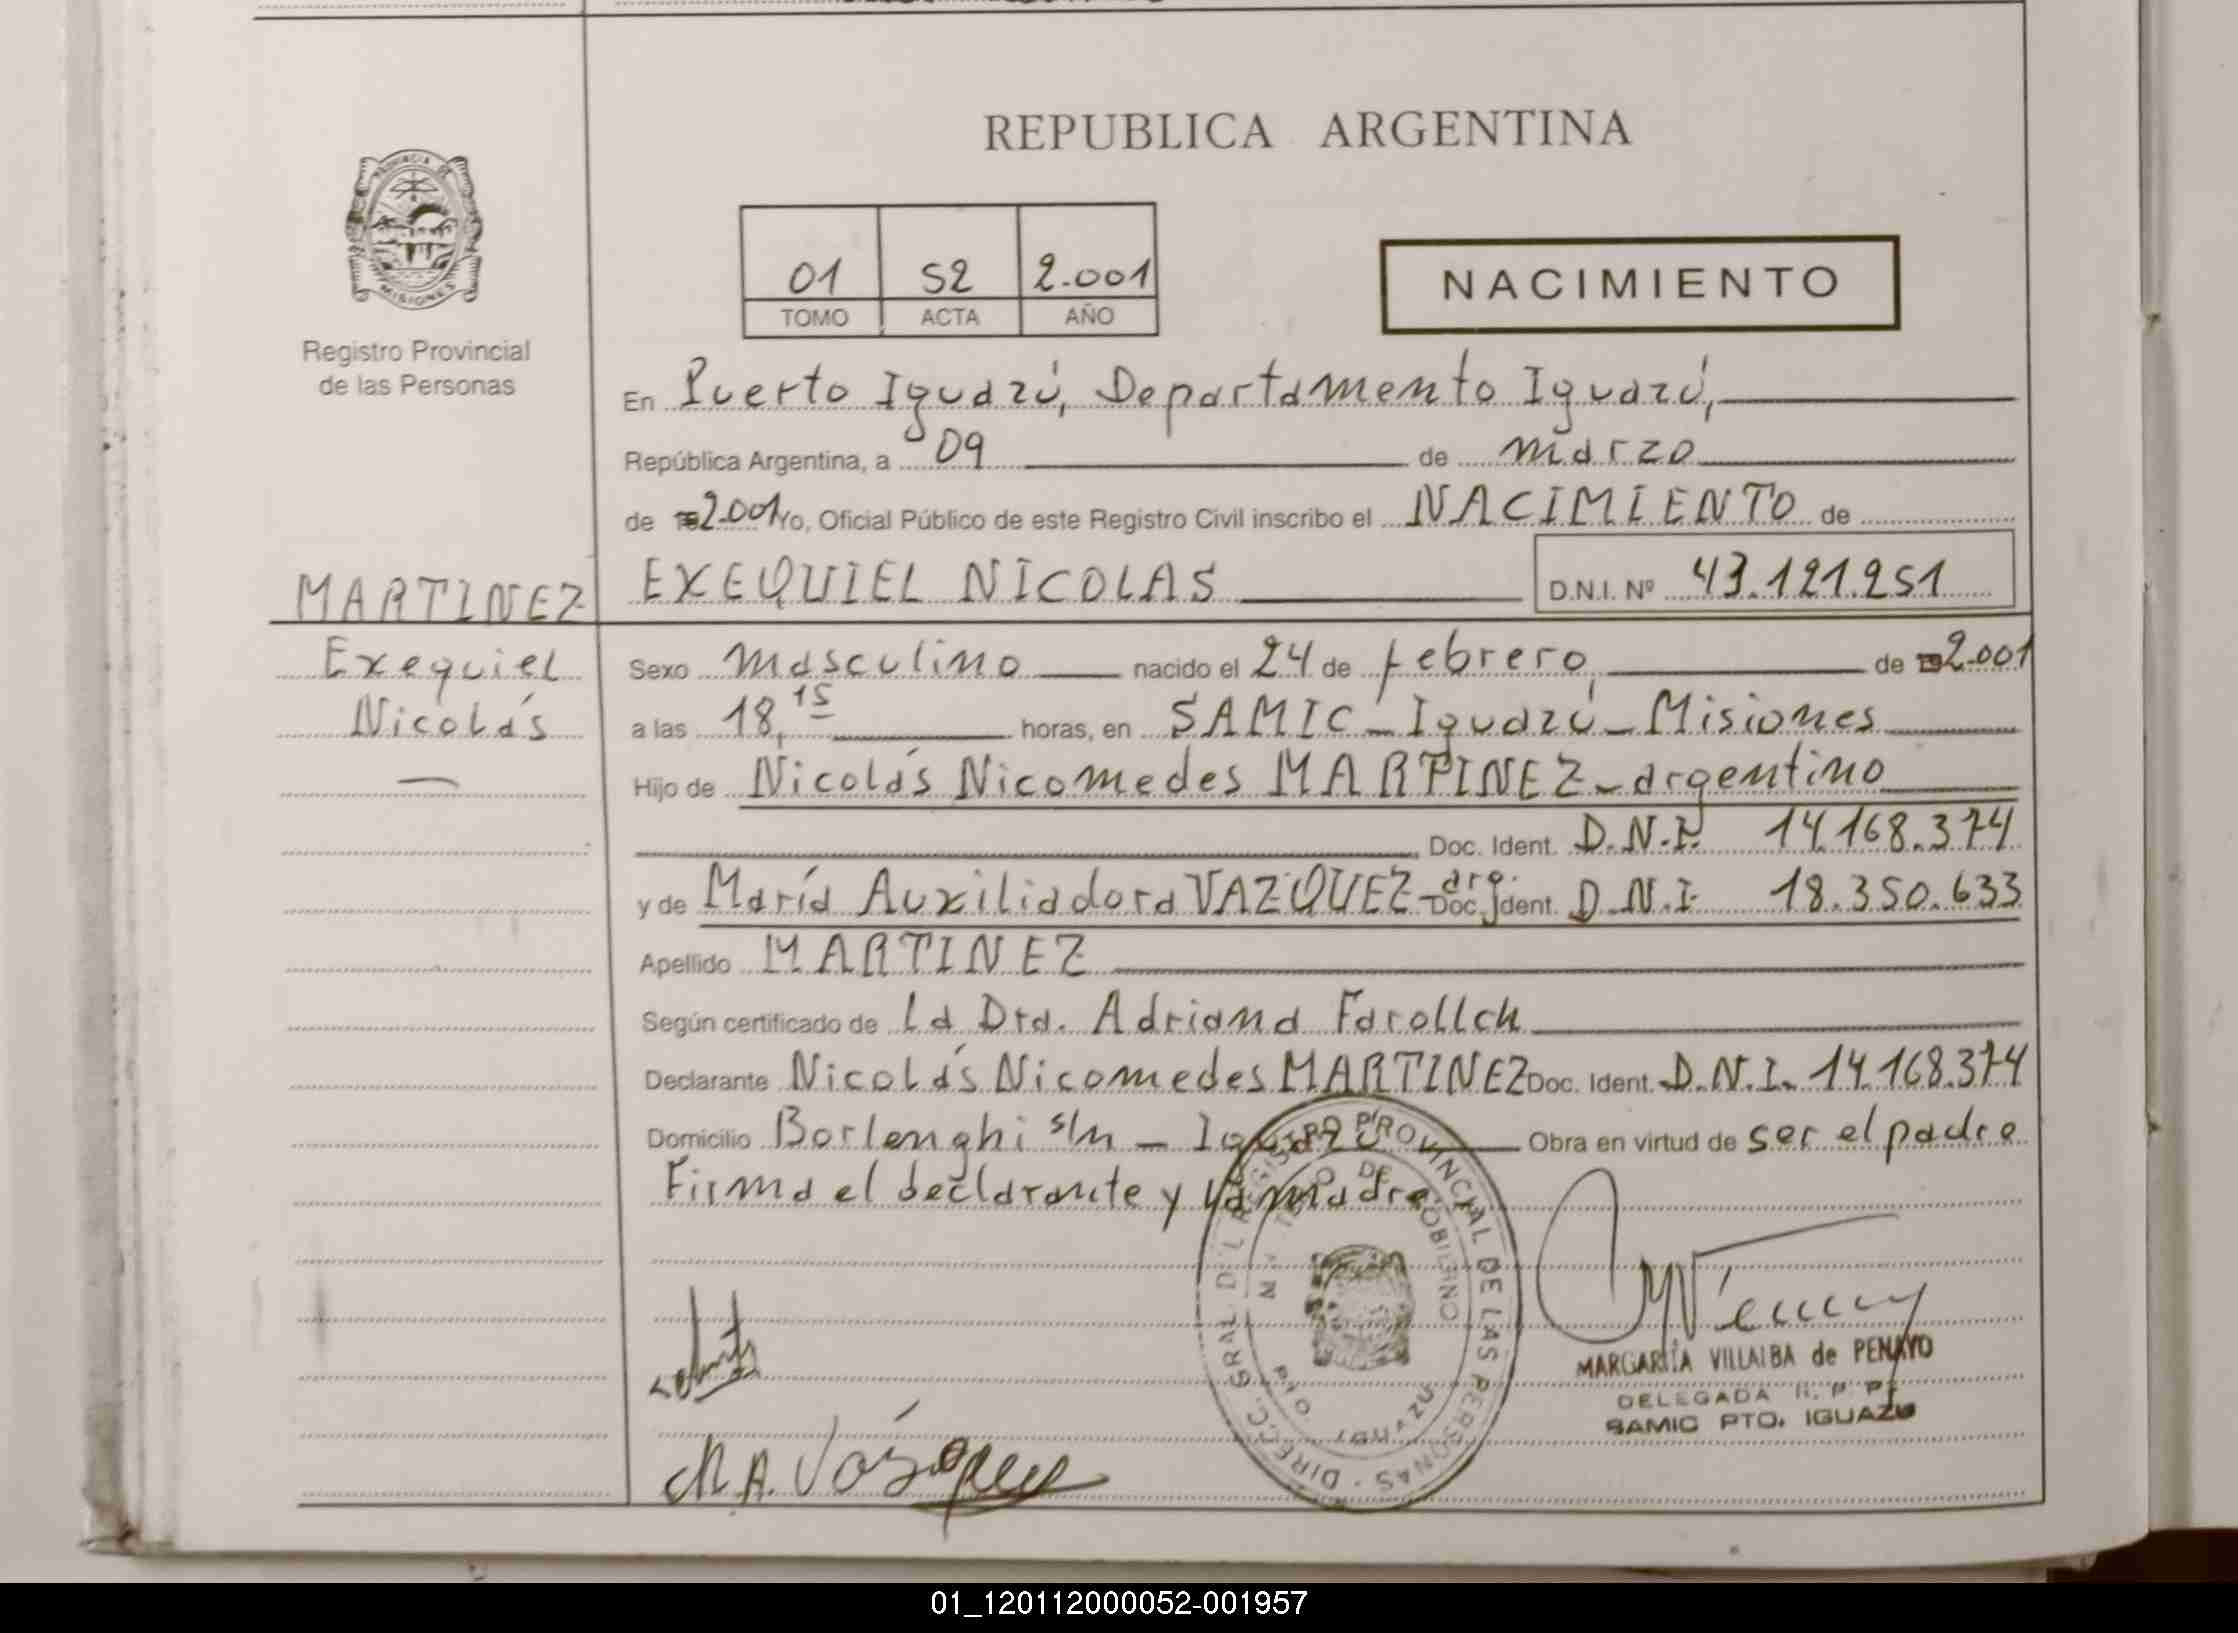 REPUBLICA ARGENTINA
PROVINCIA DE
MISIONES
Registro Provincial
de las Personas
01 52 2.001
TOMO ACTA AÑO
NACIMIENTO
En Puerto Iguazú, Departamento Iguazú,
República Argentina, a 09 de marzo
de 2.001 Yo, Oficial Público de este Registro Civil inscribo el NACIMIENTO de
EXEQUIEL NICOLAS D.N.I. Nº 43.121.251
MARTINEZ
Exequiel
Nicolás
Sexo masculino nacido el 24 de febrero, de 2.001
a las 18,15 horas, en SAMIC - Iguazú - Misiones
Hijo de Nicolás Nicomedes MARTINEZ - argentino
Doc. Ident. D.N.I. 14.168.374
y de María Auxiliadora VAZQUEZ - arg. Doc. Ident. D.N.I. 18.350.633
Apellido MARTINEZ
Según certificado de La Dra. Adriana
Declarante Nicolás Nicomedes MARTINEZ Doc. Ident. D.N.I. 14.168.374
Domicilio Borlenghi s/n - Iguazú Obra en virtud de ser el padre
Firma el declarante y la madre
DIRECC. GRAL DEL REGISTRO PROVINCIAL DE LAS PERSONAS
DE GOBIERNO
IGUAZU
MARGARITA VILLALBA de PENAYO
DELEGADA R. P. P.
SAMIC PTO. IGUAZU
M.A. Vásquez
01_120112000052-001957